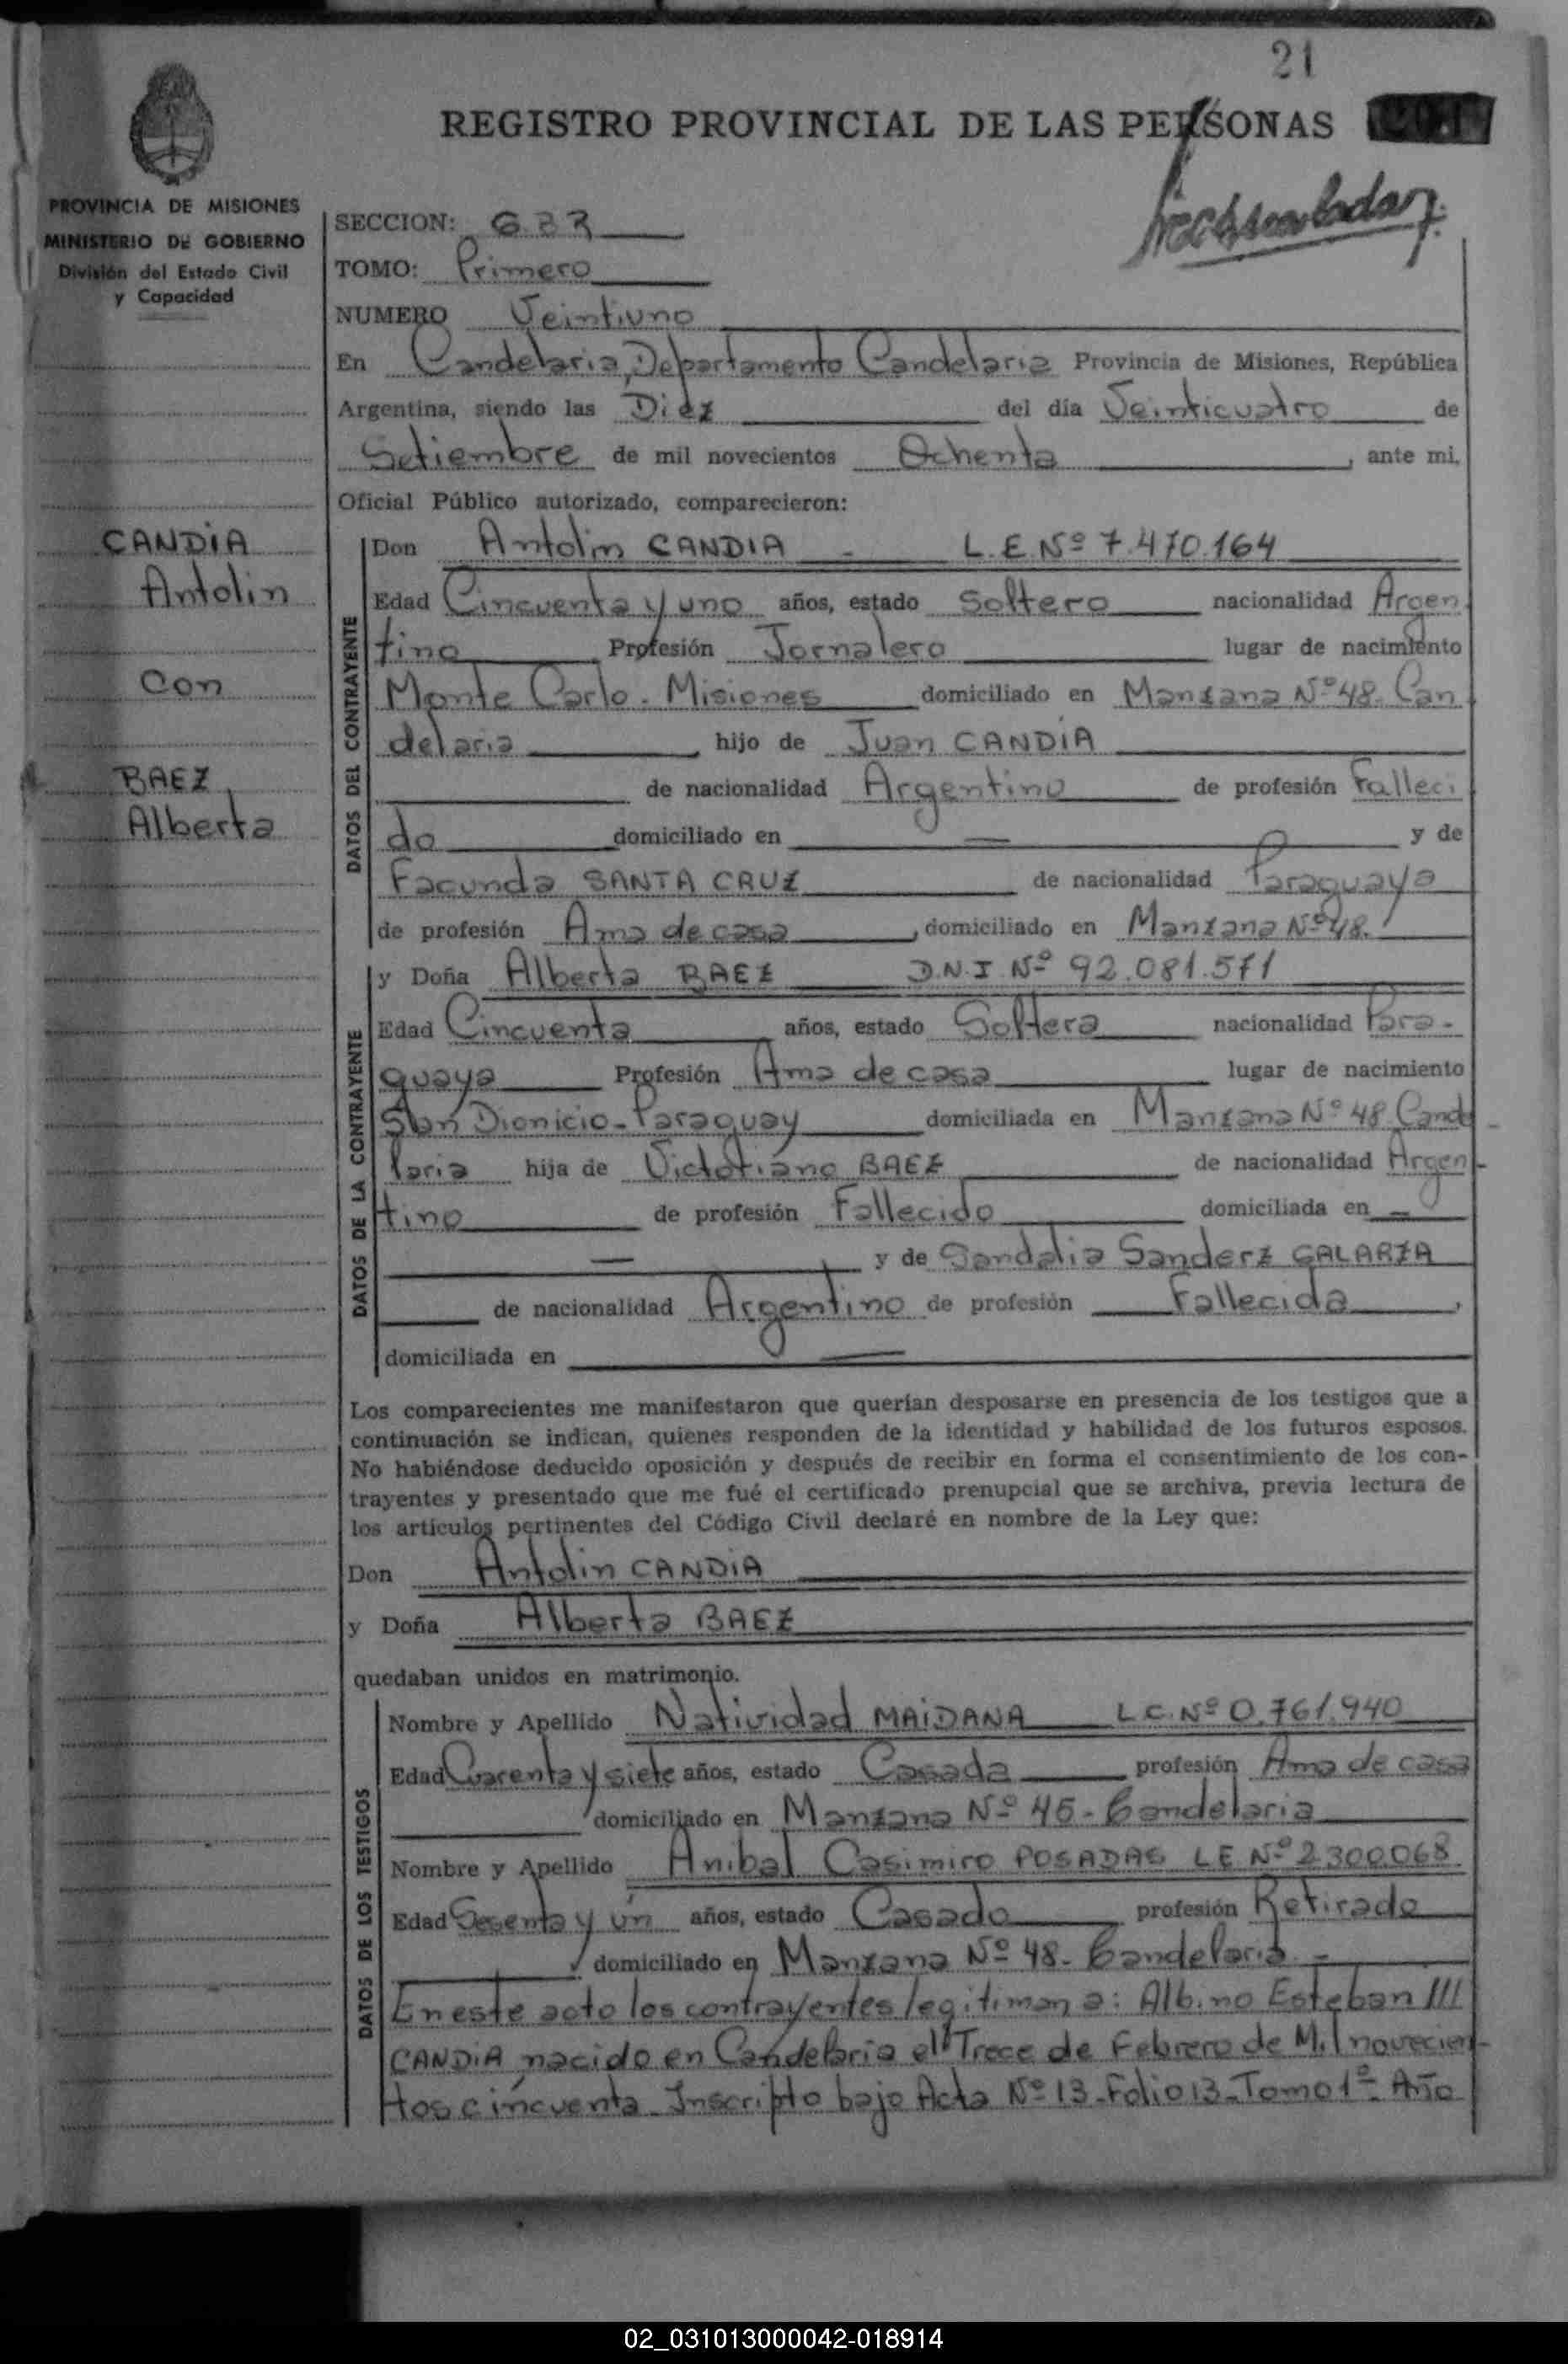 21
REGISTRO PROVINCIAL DE LAS PERSONAS
PROVINCIA DE MISIONES
MINISTERIO DE GOBIERNO
División del Estado Civil
y Capacidad
SECCION: G33
TOMO: Primero
NUMERO Veintiuno
En Candelaria, Departamento Candelaria Provincia de Misiones, República
Argentina, siendo las Diez del día Veinticuatro de
Setiembre de mil novecientos Ochenta, ante mi,
Oficial Público autorizado, comparecieron:
CANDIA
Antolin
Con
BAEZ
Alberta
DATOS DEL CONTRAYENTE
Don Antolin CANDIA - L.E.Nº 7.470.164
Edad Cincuenta y uno años, estado Soltero nacionalidad Argen
tino Profesión Jornalero lugar de nacimiento
Monte Carlo. Misiones domiciliado en Manzana Nº 48. Can
delaria, hijo de Juan CANDIA
de nacionalidad Argentino de profesión Falleci
do domiciliado en — y de
Facunda SANTA CRUZ de nacionalidad Paraguaya
de profesión Ama de casa, domiciliado en Manzana Nº 48.
DATOS DE LA CONTRAYENTE
y Doña Alberta BAEZ D.N.I Nº 92.081.571
Edad Cincuenta años, estado Soltera nacionalidad Para-
guaya Profesión Ama de casa lugar de nacimiento
San Dionicio-Paraguay domiciliada en Manzana Nº 48 Cande
laria hija de Victoriano BAEZ de nacionalidad Argen-
tino de profesión Fallecido domiciliada en —
— y de Sandalia Sanderz GALARZA
de nacionalidad Argentino de profesión Fallecida,
domiciliada en —
Los comparecientes me manifestaron que querían desposarse en presencia de los testigos que a
continuación se indican, quienes responden de la identidad y habilidad de los futuros esposos.
No habiéndose deducido oposición y después de recibir en forma el consentimiento de los con-
trayentes y presentado que me fué el certificado prenupcial que se archiva, previa lectura de
los artículos pertinentes del Código Civil declaré en nombre de la Ley que:
Don Antolin CANDIA
y Doña Alberta BAEZ
quedaban unidos en matrimonio.
DATOS DE LOS TESTIGOS
Nombre y Apellido Natividad MAIDANA L.C.Nº 0.761.940
Edad Cuarenta y siete años, estado Casada profesión Ama de casa
domiciliado en Manzana Nº 45- Candelaria
Nombre y Apellido Anibal Casimiro POSADAS LE Nº 2300068
Edad Sesenta y ún años, estado Casado profesión Retirado
domiciliado en Manzana Nº 48- Candelaria -
En este acto los contrayentes legitiman a: Albino Esteban ///
CANDIA nacido en Candelaria el Trece de Febrero de Mil novecien-
tos cincuenta Inscripto bajo Acta Nº 13-Folio 13-Tomo 1º- Año
02_031013000042-018914